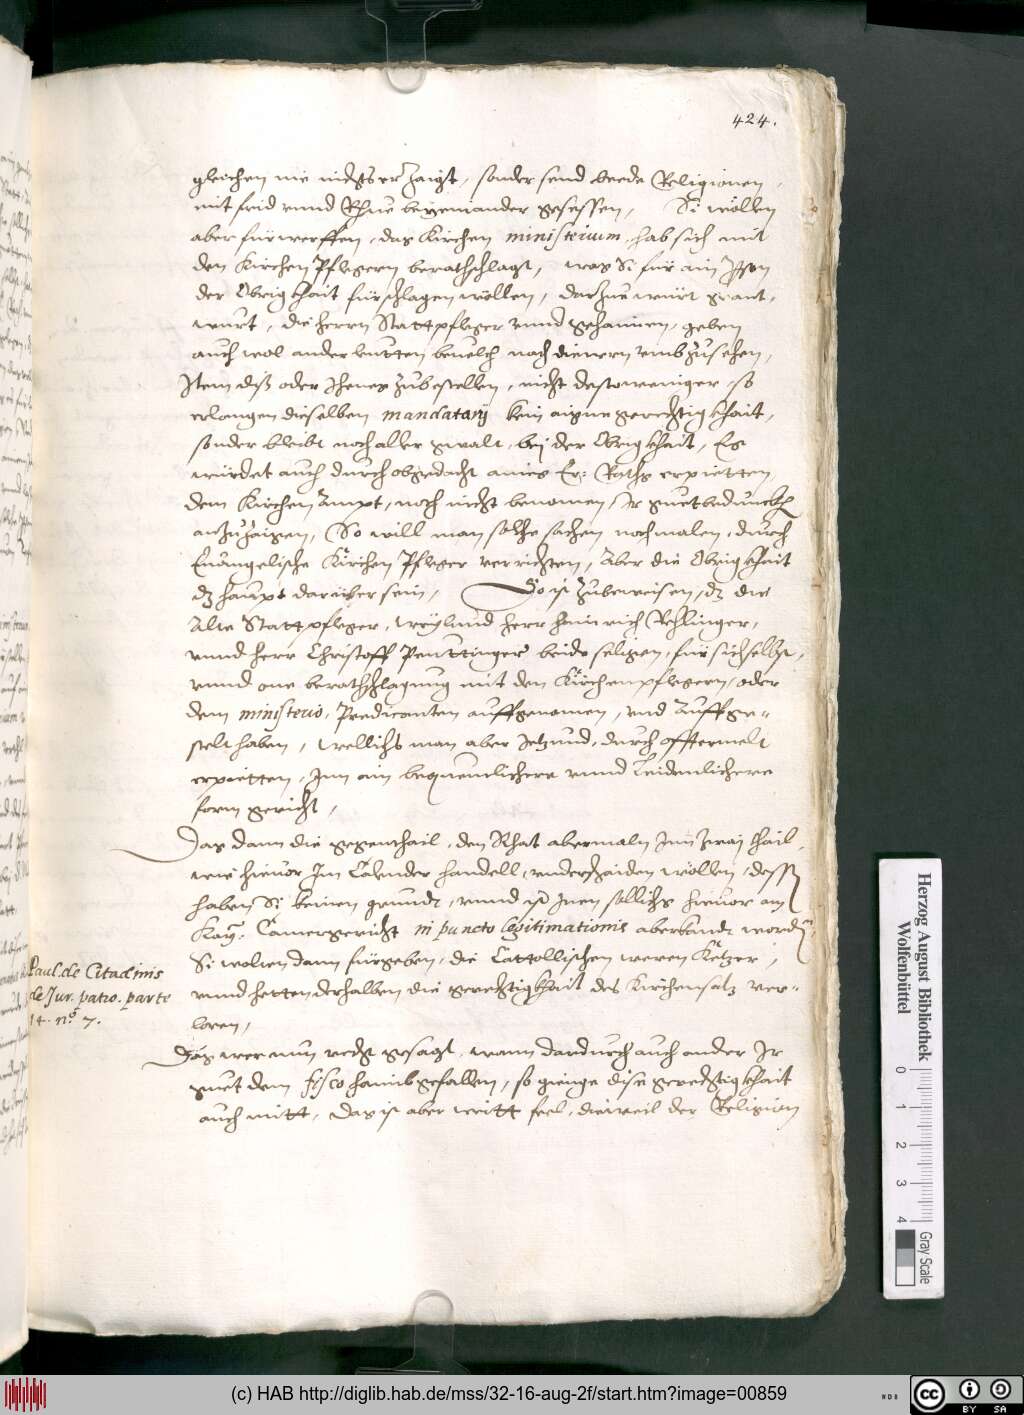 424.
gleichen nie nichts erzaigt, sonder send beede Religionen,
mit frid unnd Rhue beyeinander gesessen, Si wöllen
aber fürwerffen, das Kirchen ministerium, hab sich mit
den Kirchen Pflegern berathschlagt, was Si für ain Person
der Obrigkhait fürschlagen wöllen, darzue würt geant-
wurt, die herrn Stattpfleger unnd gehaimen, geben
auch wol ander leutten beuelch nach dienern umbzusehen,
Item diß oder Jhenes zubestellen, nicht destoweniger, so
erlangen dieselben mandatarij kein aigne gerechtigkhait,
sonder bleibt noch aller gwalt, bej der Obrigkhait, Es
würdet auch durch obgedacht aines Er: Raths erpietten
dem Kirchen Ampt, noch nicht benomen, Ir guetbeduncken
anzuzaigen, So will man solche sachen nochmalen, durch
Euangelische Kirchen Pfleger verrichten, Aber die Obrigkhait
dz haupt darüber sein, So ist zubeweisen, dz die
Alte Stattpfleger, weylund herr Hainrich Rehlinger,
unnd herr Christoff Peuttinger beide seligen, für sich selbst,
unnd one berathschlagung mit den Kirchenpflegern, oder
dem ministerio, Predicanten auffgenomen, und Auffge-
stelt haben, wellichs man aber Jetzund, durch offtermelt
erpietten, Inn ain bequemlichere unnd leidenlichere
form gericht,
Das dann die gegenthail, den Rhat abermaln Inn zwaj thail,
wie hieuor Im Calender handell, underschaiden wöllen, dessen
haben Si keinen grundt, unnd ist Inen sollichs hieuor am
Kay. Camergericht in puncto legitimationis aberkandt worden,
Si wolten dann fürgeben, die Cattollischen weren Kätzer,
unnd hetten derhalben die gerechtigkhait des Kirchensatz ver-
loren,
Paul. de Citadinis
de Jur. patro. parte
14. no. 7.
Das wer nun recht gesagt, wann dardurch auch ander Ir
guet dem fisco haimbgefallen, so gienge dise gerechtigkhait
auch mitt, Das ist aber weitt feel, dieweil der Religion
Herzog August Bibliothek
Wolfenbüttel
0 1 2 3 4
Gray Scale
(c) HAB http://diglib.hab.de/mss/32-16-aug-2f/start.htm?image=00859
WDB
cc BY SA